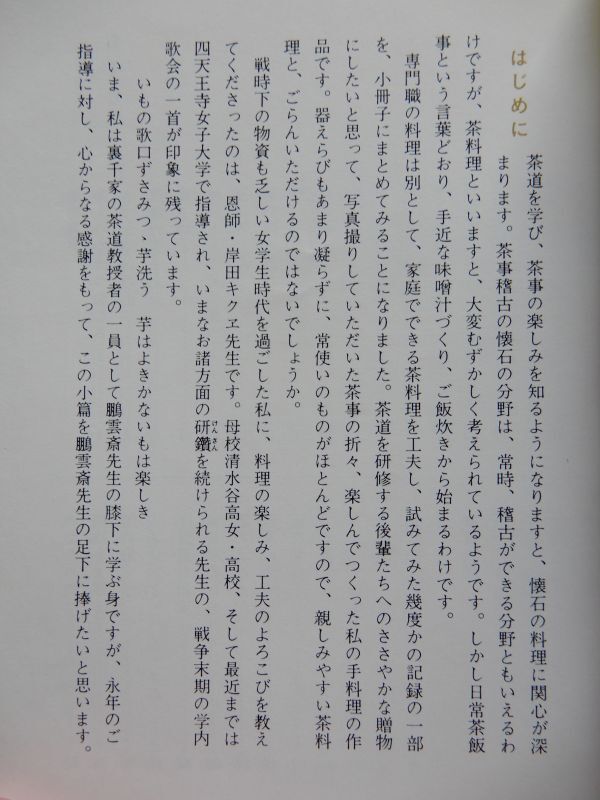 はじめに
茶道を学び、茶事の楽しみを知るようになりますと、懐石の料理に関心が深
まります。茶事稽古の懐石の分野は、常時、稽古ができる分野ともいえるわ
けですが、茶料理といいますと、大変むずかしく考えられているようです。しかし日常茶飯
事という言葉どおり、手近な味噌汁づくり、ご飯炊きから始まるわけです。
専門職の料理は別として、家庭でできる茶料理を工夫し、試みてみた幾度かの記録の一部
を、小冊子にまとめてみることになりました。茶道を研修する後輩たちへのささやかな贈物
にしたいと思って、写真撮りしていただいた茶事の折々、楽しんでつくった私の手料理の作
品です。器えらびもあまり凝らずに、常使いのものがほとんどですので、親しみやすい茶料
理と、ごらんいただけるのではないでしょうか。
戦時下の物資も乏しい女学生時代を過ごした私に、料理の楽しみ、工夫のよろこびを教え
てくださったのは、恩師・岸田キクヱ先生です。母校清水谷高女・高校、そして最近までは
四天王寺女子大学で指導され、いまなお諸方面の研鑽けんさんを続けられる先生の、戦争末期の学内
歌会の一首が印象に残っています。
いもの歌口ずさみつゝ芋洗う 芋はよきかないもは楽しき
いま、私は裏千家の茶道教授者の一員として鵬雲斎先生の膝下に学ぶ身ですが、永年のご
指導に対し、心からなる感謝をもって、この小篇を鵬雲斎先生の足下に捧げたいと思います。